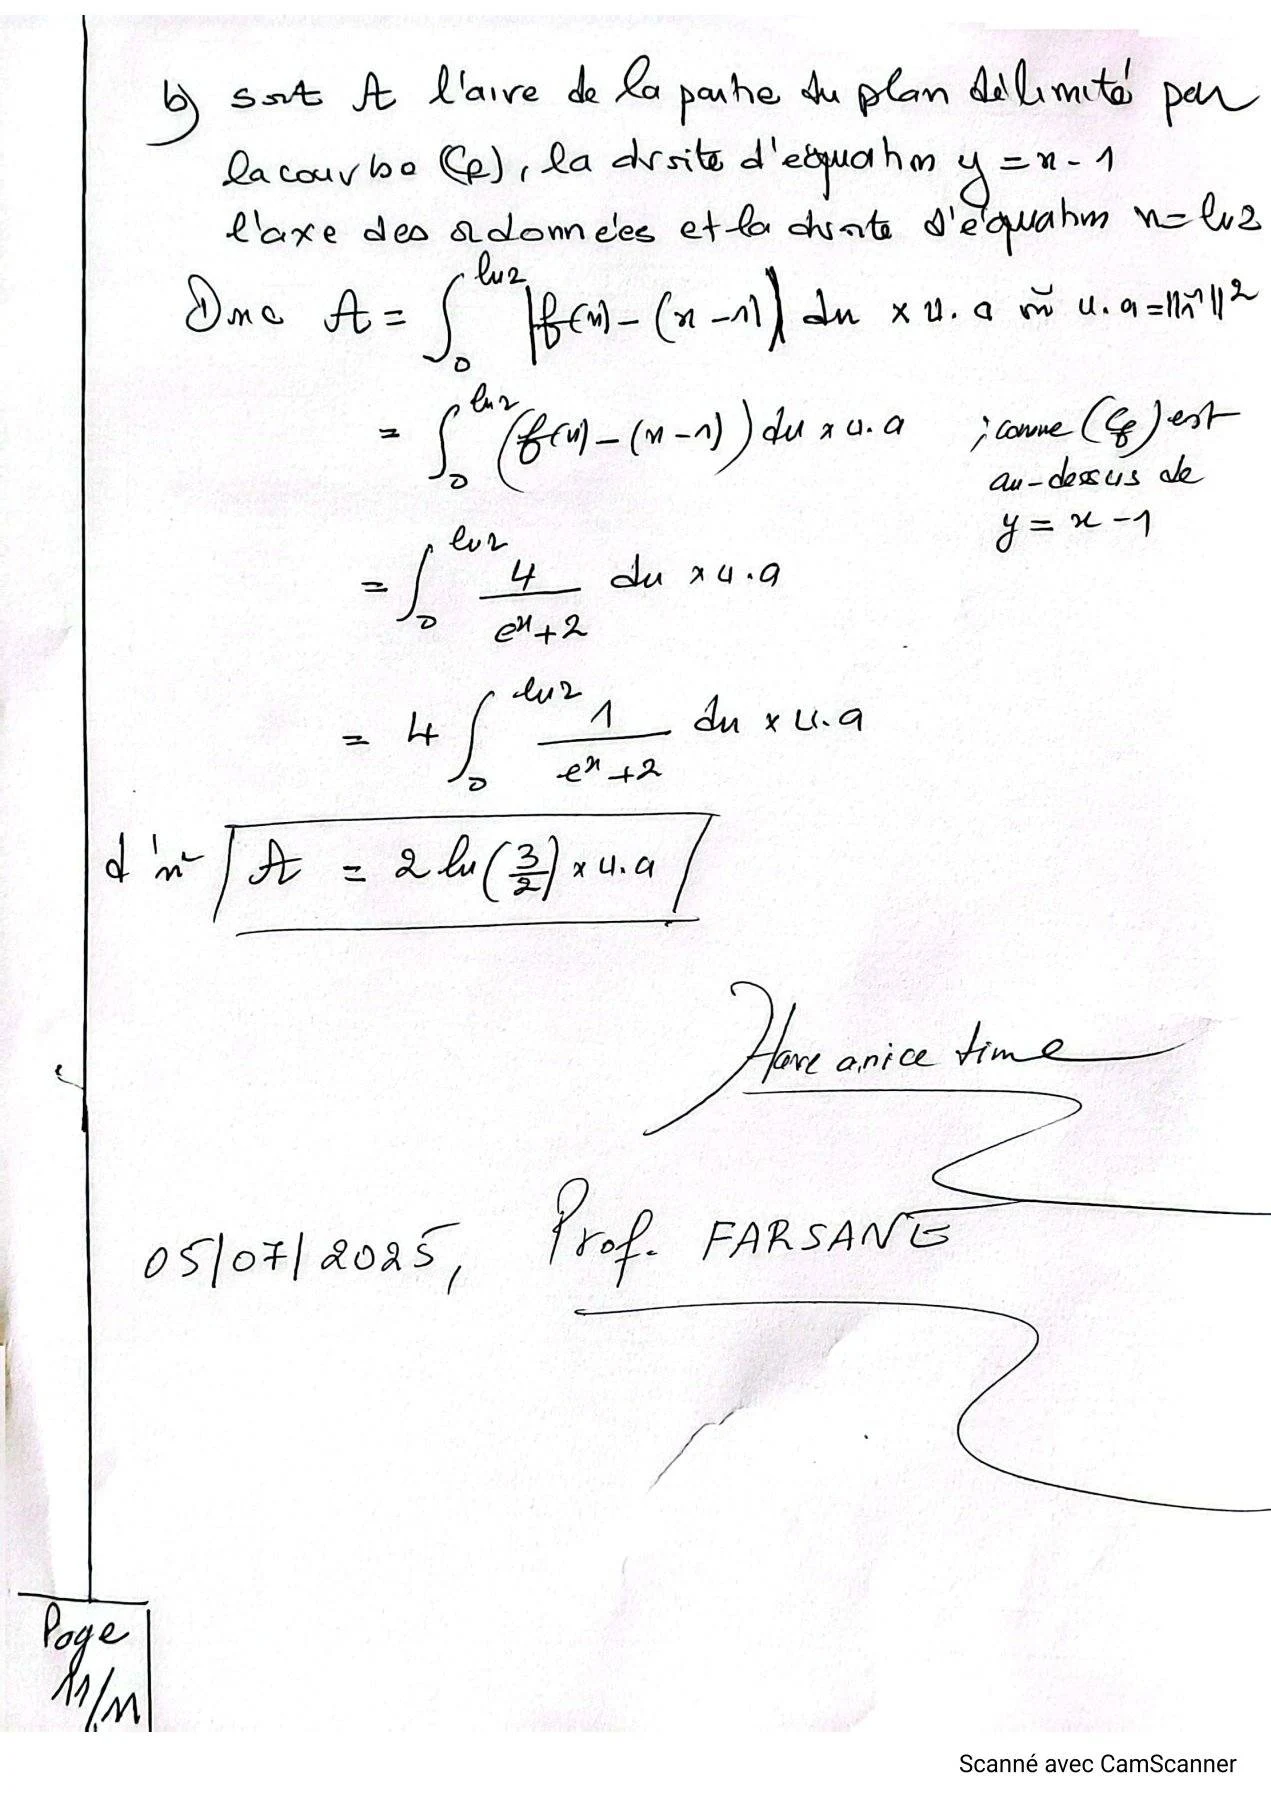 b) soit A l'aire de la partie du plan délimité par
la courbe (Cf), la droite d'équation y = x - 1
l'axe des ordonnées et la droite d'équation x = ln2
Donc A = ∫₀^ln2 |f(x) - (x - 1)| dx × u.a où u.a = ||i||²
= ∫₀^ln2 (f(x) - (x - 1)) dx × u.a ; comme (Cf) est
au-dessus de
y = x - 1
= ∫₀^ln2 4/(eˣ+2) dx × u.a
= 4 ∫₀^ln2 1/(eˣ+2) dx × u.a
d'où A = 2 ln(3/2) × u.a
Have a nice time
05/07/2025, Prof. FARSANE
Page
11/11
Scanné avec CamScanner